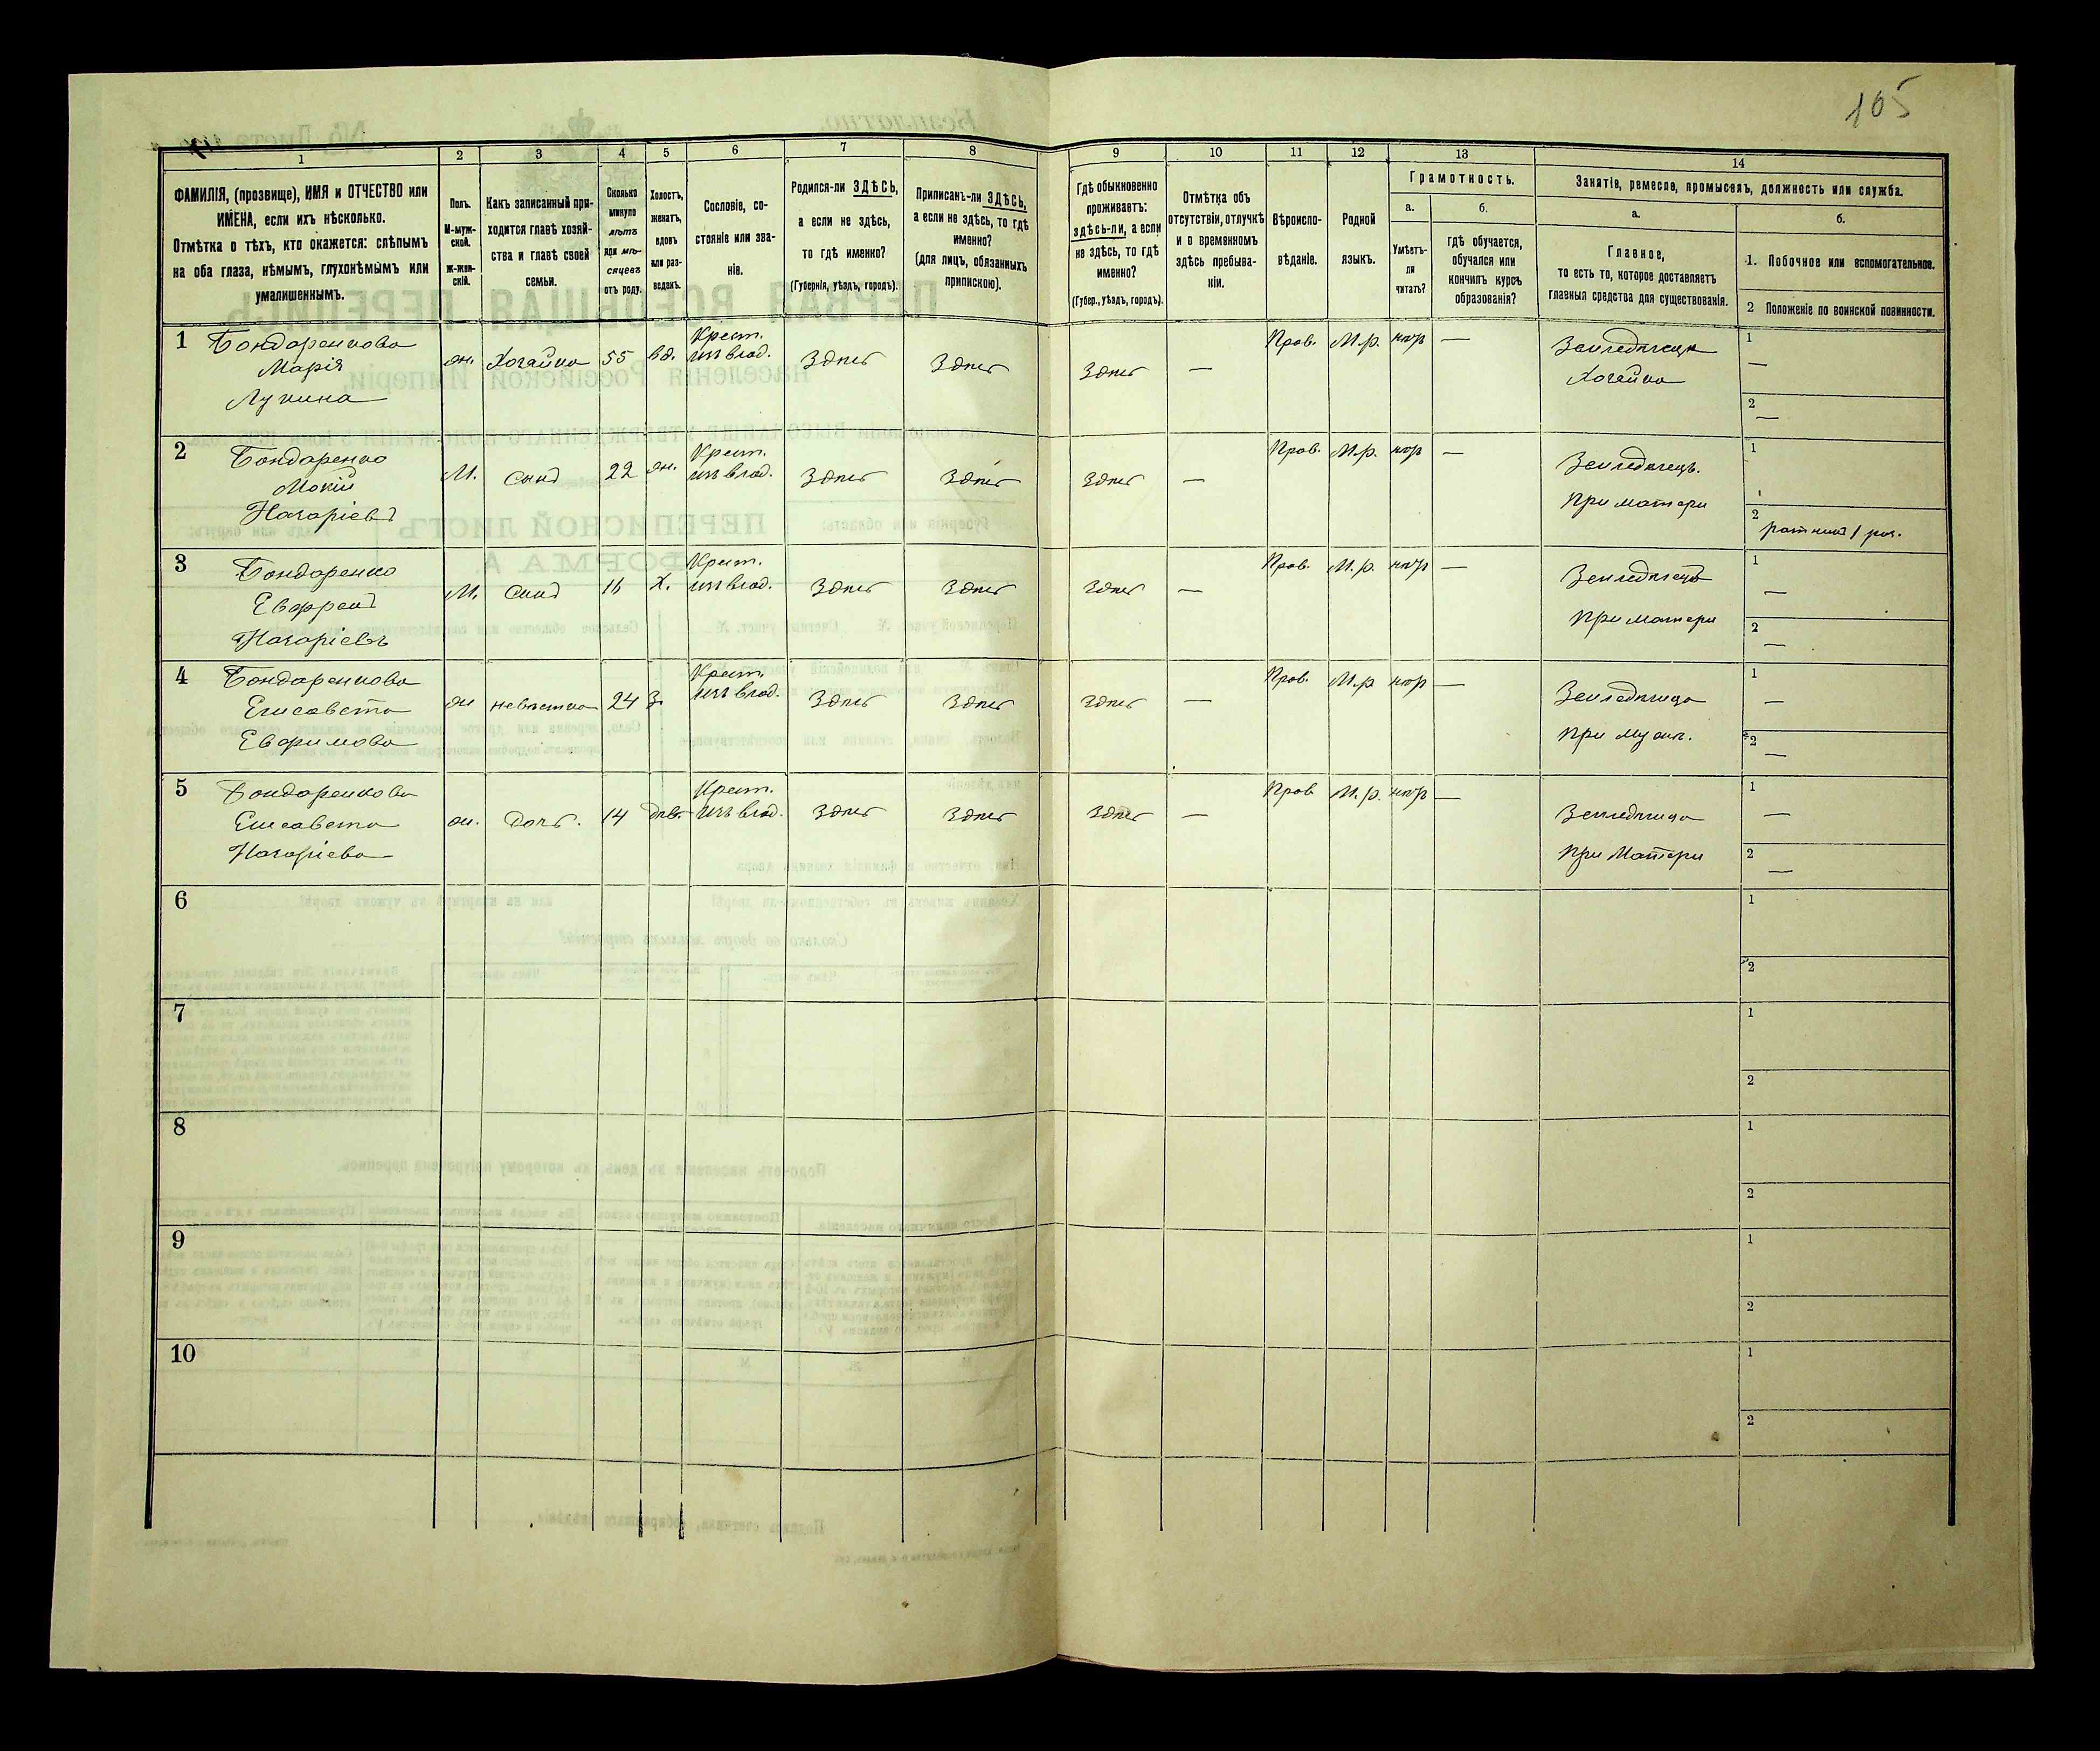 105
1
2
3
4
5
6
7
8
9
10
11
12
13
14
ФАМИЛІЯ, (прозвище), ИМЯ и ОТЧЕСТВО или
ИМЕНА, если ихъ нѣсколько.
Отмѣтка о тѣхъ, кто окажется: слѣпымъ
на оба глаза, нѣмымъ, глухонѣмымъ или
умалишеннымъ.
Полъ.
М-муж-
ской.
Ж-жен-
скій.
Какъ записанный при-
ходится главѣ хозяй-
ства и главѣ своей
семьи.
Сколько
минуло
лѣтъ
или мѣ-
сяцевъ
отъ роду.
Холостъ,
женатъ,
вдовъ
или раз-
веденъ.
Сословіе, со-
стояніе или зва-
ніе.
Родился-ли ЗДѢСЬ,
а если не здѣсь,
то гдѣ именно?
(Губернія, уѣздъ, городъ).
Приписанъ-ли ЗДѢСЬ,
а если не здѣсь, то гдѣ
именно?
(для лицъ, обязанныхъ
припискою).
Гдѣ обыкновенно
проживаетъ:
здѣсь-ли, а если
не здѣсь, то гдѣ
именно?
(Губер., уѣздъ, городъ).
Отмѣтка объ
отсутствіи, отлучкѣ
и о временномъ
здѣсь пребыва-
ніи.
Вѣроиспо-
вѣданіе.
Родной
языкъ.
Грамотность.
а.
Умѣетъ-
ли
читать?
б.
гдѣ обучается,
обучался или
кончилъ курсъ
образованія?
Занятіе, ремесло, промыселъ, должность или служба.
а.
Главное,
то есть то, которое доставляетъ
главныя средства для существованія.
б.
1. Побочное или вспомогательное.
2 Положеніе по воинской повинности.
1 Бондаренкова
Марія
Лукина
ж. Хозяйка 55 вд. Крест.
изъ влад. Здѣсь Здѣсь Здѣсь — Прав. М.р. нѣтъ — Земледѣлецъ
Хозяйка
1 —
2 —
2 Бондаренко
Мокій
Назаріевъ
М. Сынъ 22 жн. Крест.
изъ влад. Здѣсь Здѣсь Здѣсь — Прав. М.р. нѣтъ — Земледѣлецъ.
При матери
1
2 ратникъ 1 раз.
3 Бондаренко
Евфремъ
Назаріевъ
М. Сынъ 16 Х. Крест.
изъ влад. Здѣсь Здѣсь Здѣсь — Прав. М.р. нѣтъ — Земледѣлецъ
При матери
1 —
2 —
4 Бондаренкова
Елисавета
Евфимова
ж невѣстка 24 З. Крест.
изъ влад. Здѣсь Здѣсь Здѣсь — Прав. М.р нѣтъ — Земледѣлица
При мужѣ.
1 —
2 —
5 Бондаренкова
Елисавета
Назаріева
ж. Дочь. 14 дѣв. Крест.
изъ влад. Здѣсь Здѣсь Здѣсь — Прав М.р. нѣтъ — Земледѣлица
При Матери
1 —
2 —
6
1
2
7
1
2
8
1
2
9
1
2
10
1
2